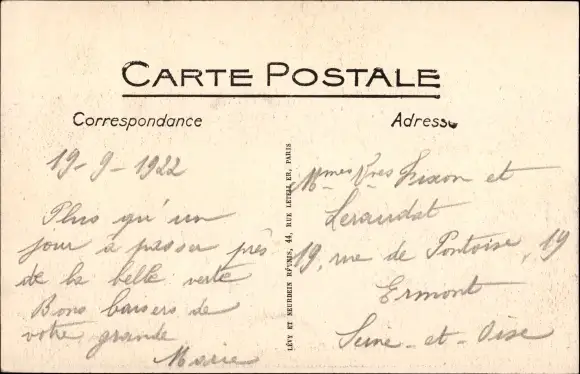 CARTE POSTALE
Correspondance
Adresse
19-9-1922
Plus qu'un
jour à passer près
de la belle verte
Bons baisers de
votre grande
Marie
LÉVY ET NEURDEIN RÉUNIS, 44, RUE LETELLIER, PARIS
Mmes Vves et
19, rue de Pontoise, 19
Ermont
Seine-et-Oise